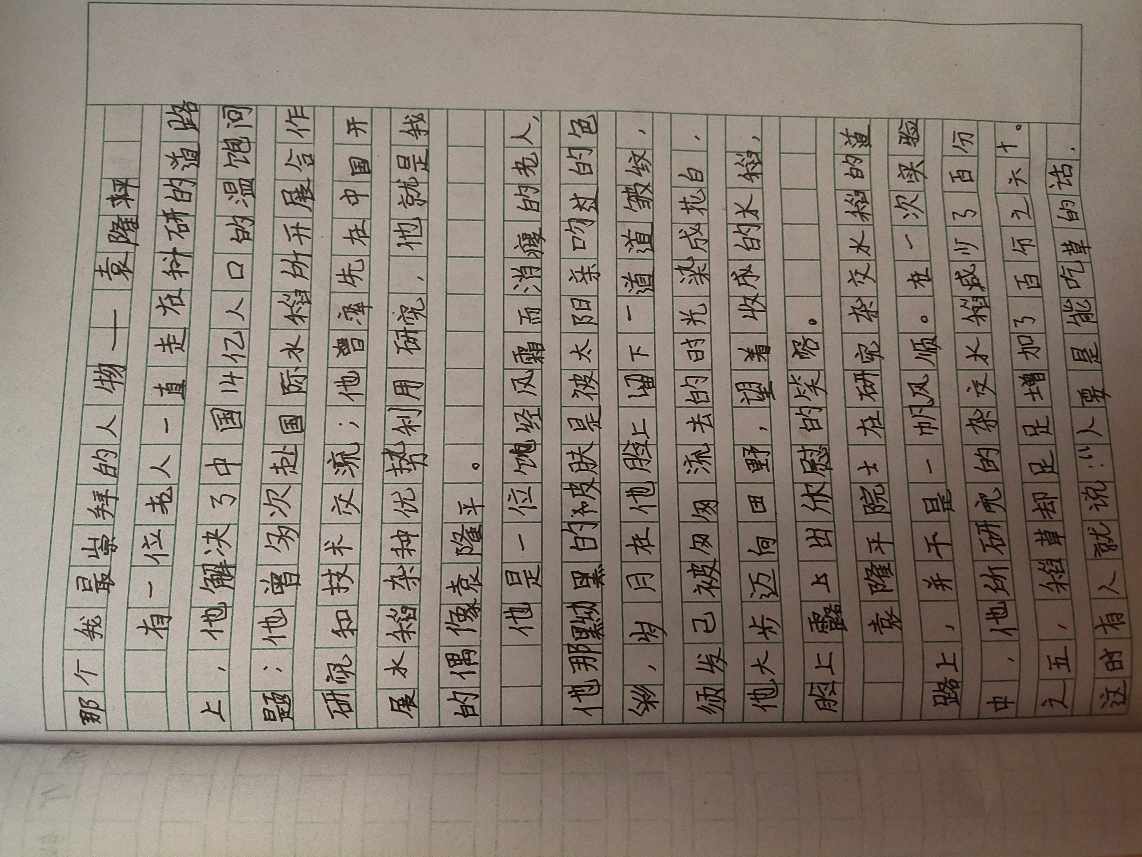 那个我最崇拜的人物——袁隆平
有一位老人一直走在科研的道路
上，他解决了中国14亿人口的温饱问
题；他曾多次赴国际水稻所开展合作
研究和技术交流；他曾率先在中国开
展水稻杂种优势利用研究，他就是我
的偶像袁隆平。
他是一位饱经风霜而消瘦的老人，
他那黝黑的皮肤是被太阳亲吻过的色
彩，岁月在他脸上留下一道道皱纹，
须发已被匆匆流去的时光染成花白，
他大步迈向田野，望着收成的水稻，
脸上露出欣慰的笑容。
袁隆平院士在研究杂交水稻的道
路上，并不是一帆风顺。在一次实验
中，他所研究的杂交水稻减少了百分
之五，稻草却足足增加了百分之六十。
这时有人就说：“人要是能吃草的话，